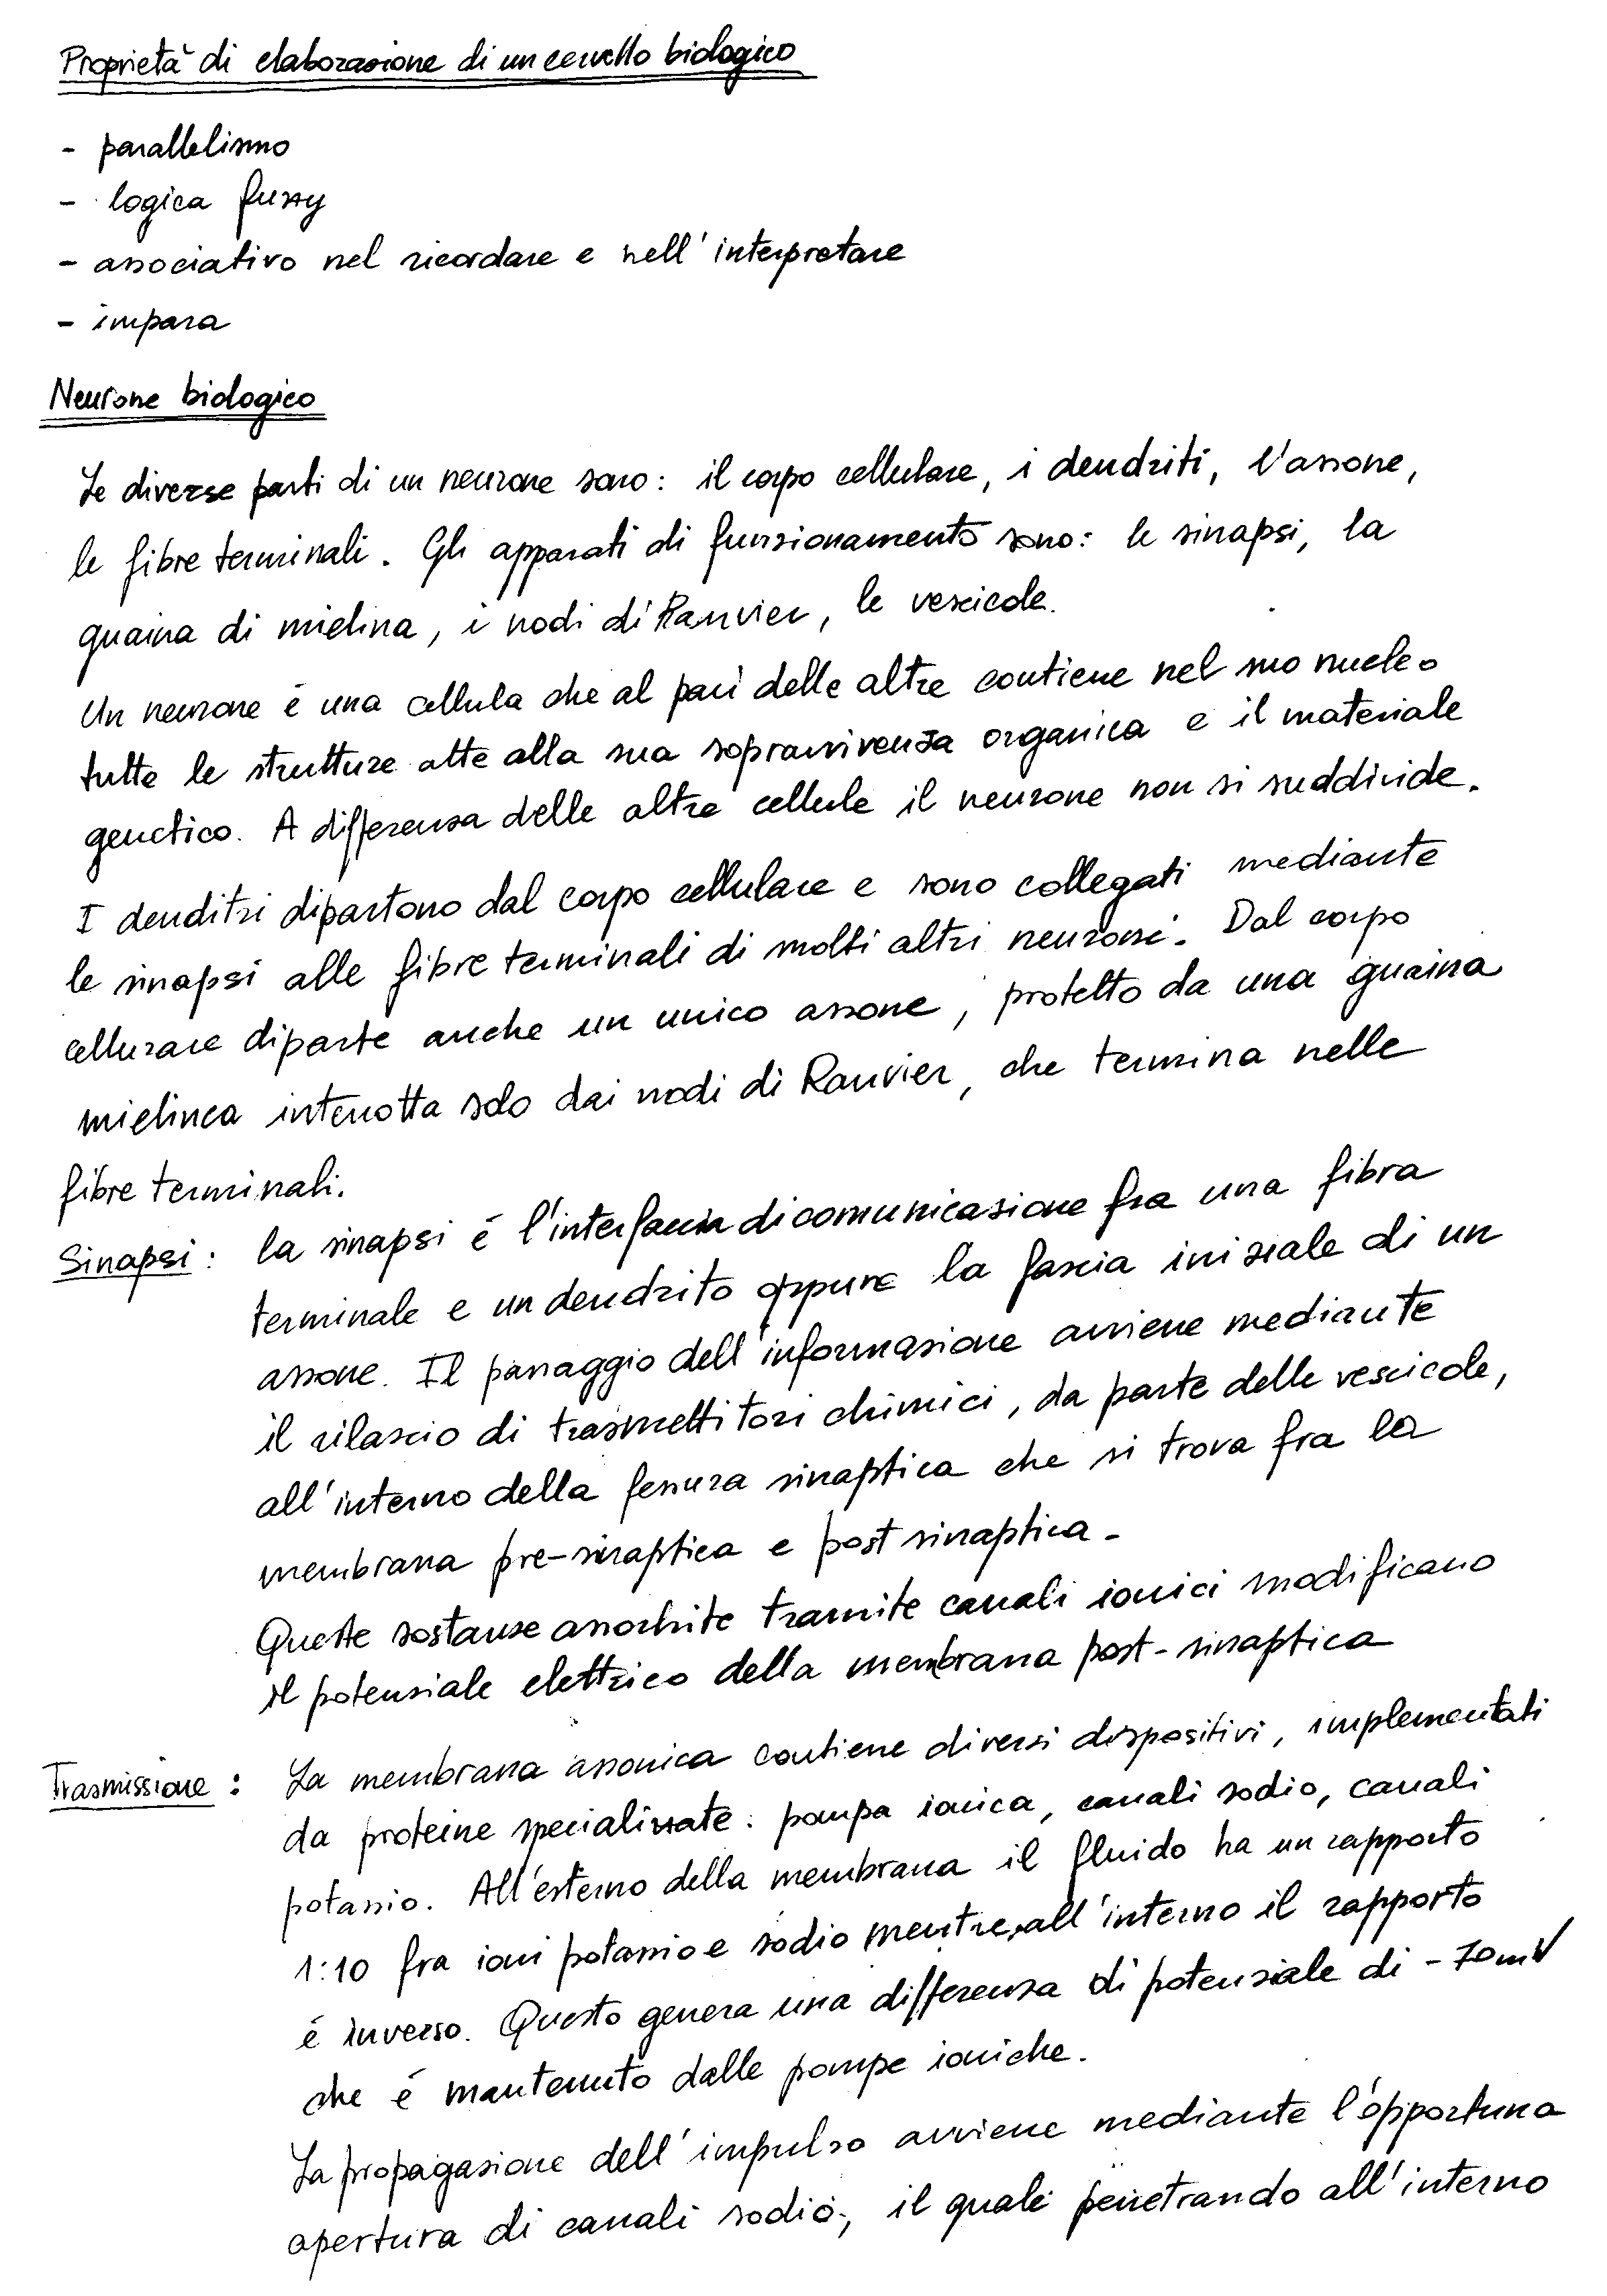 Proprietà di elaborazione di un cervello biologico
- parallelismo
- logica fuzzy
- associativo nel ricordare e nell'interpretare
- impara
Neurone biologico
Le diverse parti di un neurone sono: il corpo cellulare, i dendriti, l'assone,
le fibre terminali. Gli apparati di funzionamento sono: le sinapsi, la
guaina di mielina, i nodi di Ranvier, le vescicole.
Un neurone è una cellula che al pari delle altre contiene nel suo nucleo
tutte le strutture atte alla sua sopravvivenza organica e il materiale
genetico. A differenza delle altre cellule il neurone non si suddivide.
I denditri dipartono dal corpo cellulare e sono collegati mediante
le sinapsi alle fibre terminali di molti altri neuroni. Dal corpo
cellurare diparte anche un unico assone, protetto da una guaina
mielinea interrotta solo dai nodi di Ranvier, che termina nelle
fibre terminali.
Sinapsi: la sinapsi é l'interfaccia di comunicazione fra una fibra
terminale e un dendrito oppure la fascia iniziale di un
assone. Il passaggio dell'informazione avviene mediante
il rilascio di trasmettitori chimici, da parte delle vescicole,
all'interno della fessura sinaptica che si trova fra la
membrana pre-sinaptica e post sinaptica.
Queste sostanze assorbite tramite canali ionici modificano
il potenziale elettrico della membrana post-sinaptica
Trasmissione: La membrana assonica contiene diversi dispositivi, implementati
da proteine specializzate: pompa ionica, canali sodio, canali
potassio. All'esterno della membrana il fluido ha un rapporto
1:10 fra ioni potassio e sodio mentre, all'interno il rapporto
é inverso. Questo genera una differenza di potenziale di -70mV
che é mantenuto dalle pompe ioniche.
La propagazione dell'impulso avviene mediante l'opportuna
apertura di canali sodio, il quale penetrando all'interno